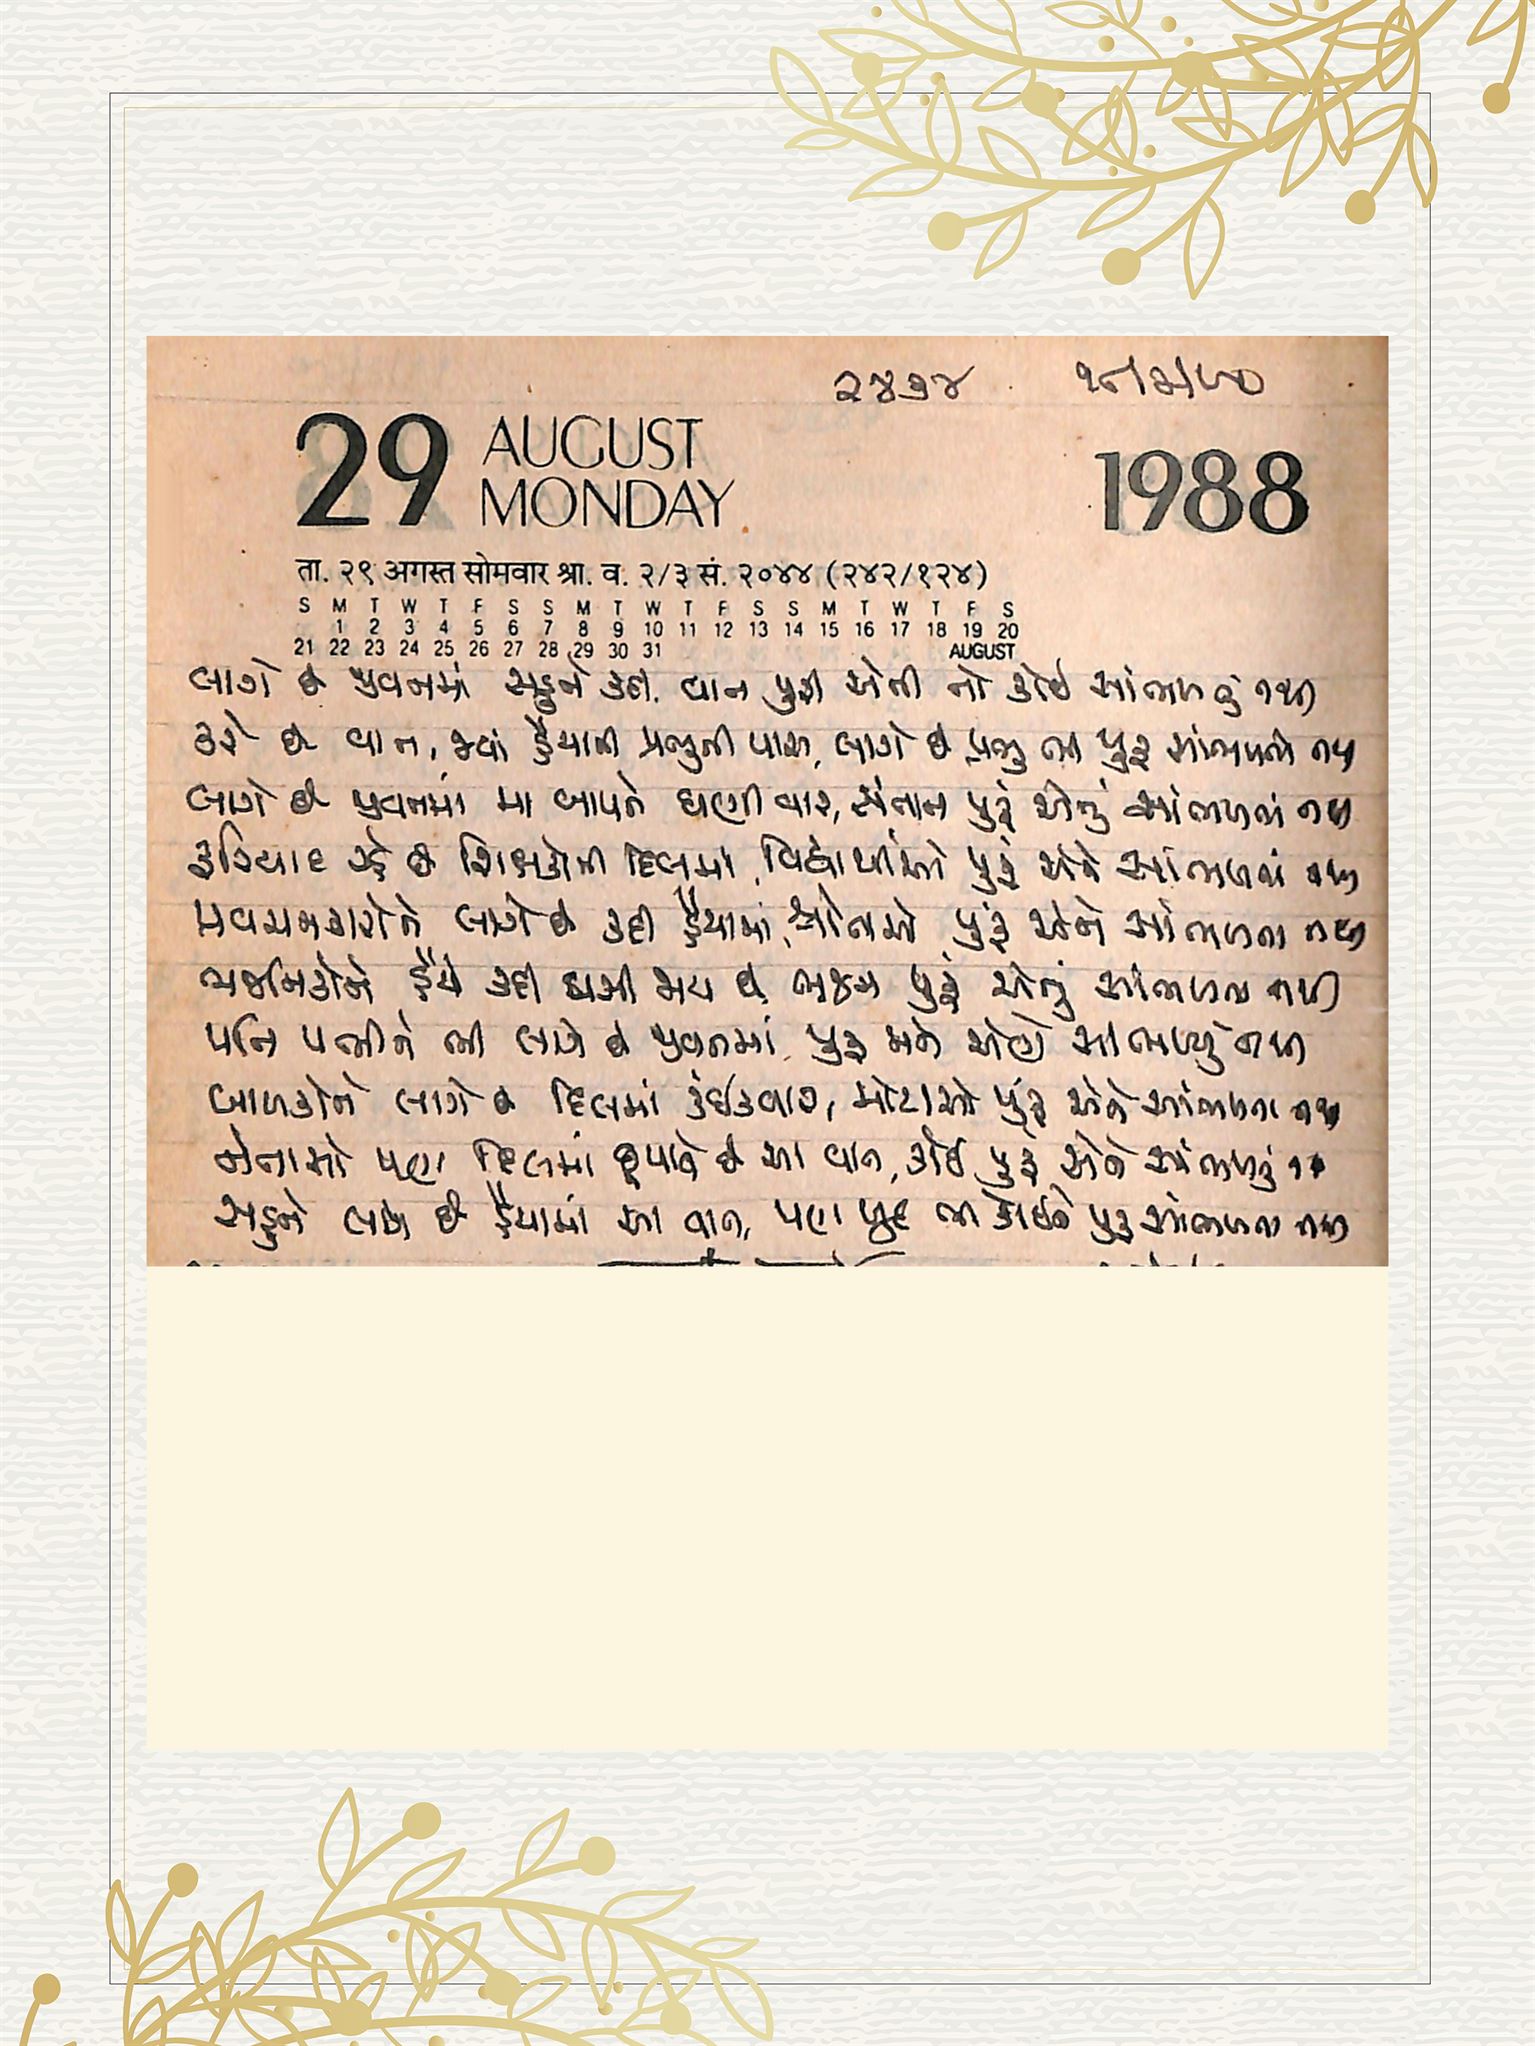 ૨૪૭૪ ૧૯/૫/૯૦
29 AUGUST 1988
MONDAY
ता. २९ अगस्त सोमवार श्रा. व. २/३ सं. २०४४ (२४२/१२४)
S M T W T F S S M T W T F S S M T W T F S
1 2 3 4 5 6 7 8 9 10 11 12 13 14 15 16 17 18 19 20
21 22 23 24 25 26 27 28 29 30 31 AUGUST
લાગે છે જીવનમાં સહુને કદી, વાત પુરી એની તો કોઈ સાંભળતું નથી
કરે છે વાત, જ્યાં હૈયાની પ્રભુની પાસ, લાગે છે પ્રભુ ભી પુરૂં સાંભળતો નથી
લાગે છે જીવનમાં મા બાપને ઘણી વાર, સંતાન પુરૂં એનું સાંભળતાં નથી
ફરિયાદ રહે છે શિક્ષકોની દિલમાં, વિદ્યાર્થીઓ પુરૂં એને સાંભળતાં નથી
પ્રવચનકારોને લાગે છે કદી હૈયામાં, શ્રોતાઓ પુરૂં એને સાંભળતા નથી
ભજનિકોને હૈયે કદી થાતી જાય છે, ભજન પુરૂં એનું સાંભળતા નથી
પતિ પત્નીને ભી લાગે છે જીવનમાં, પુરૂં મને એણે સાંભળ્યું નથી
બાળકોને લાગે છે દિલમાં કંઈકવાર, મોટાઓ પુરૂં એને સાંભળતા નથી
નેતાઓ પણ દિલમાં છૂપાવે છે આ વાત, કોઈ પુરૂં એને સાંભળતું નથી
સહુને લાગે છે હૈયામાં આ વાત, પણ ખુદ ભી કોઈને પુરૂં સાંભળતા નથી